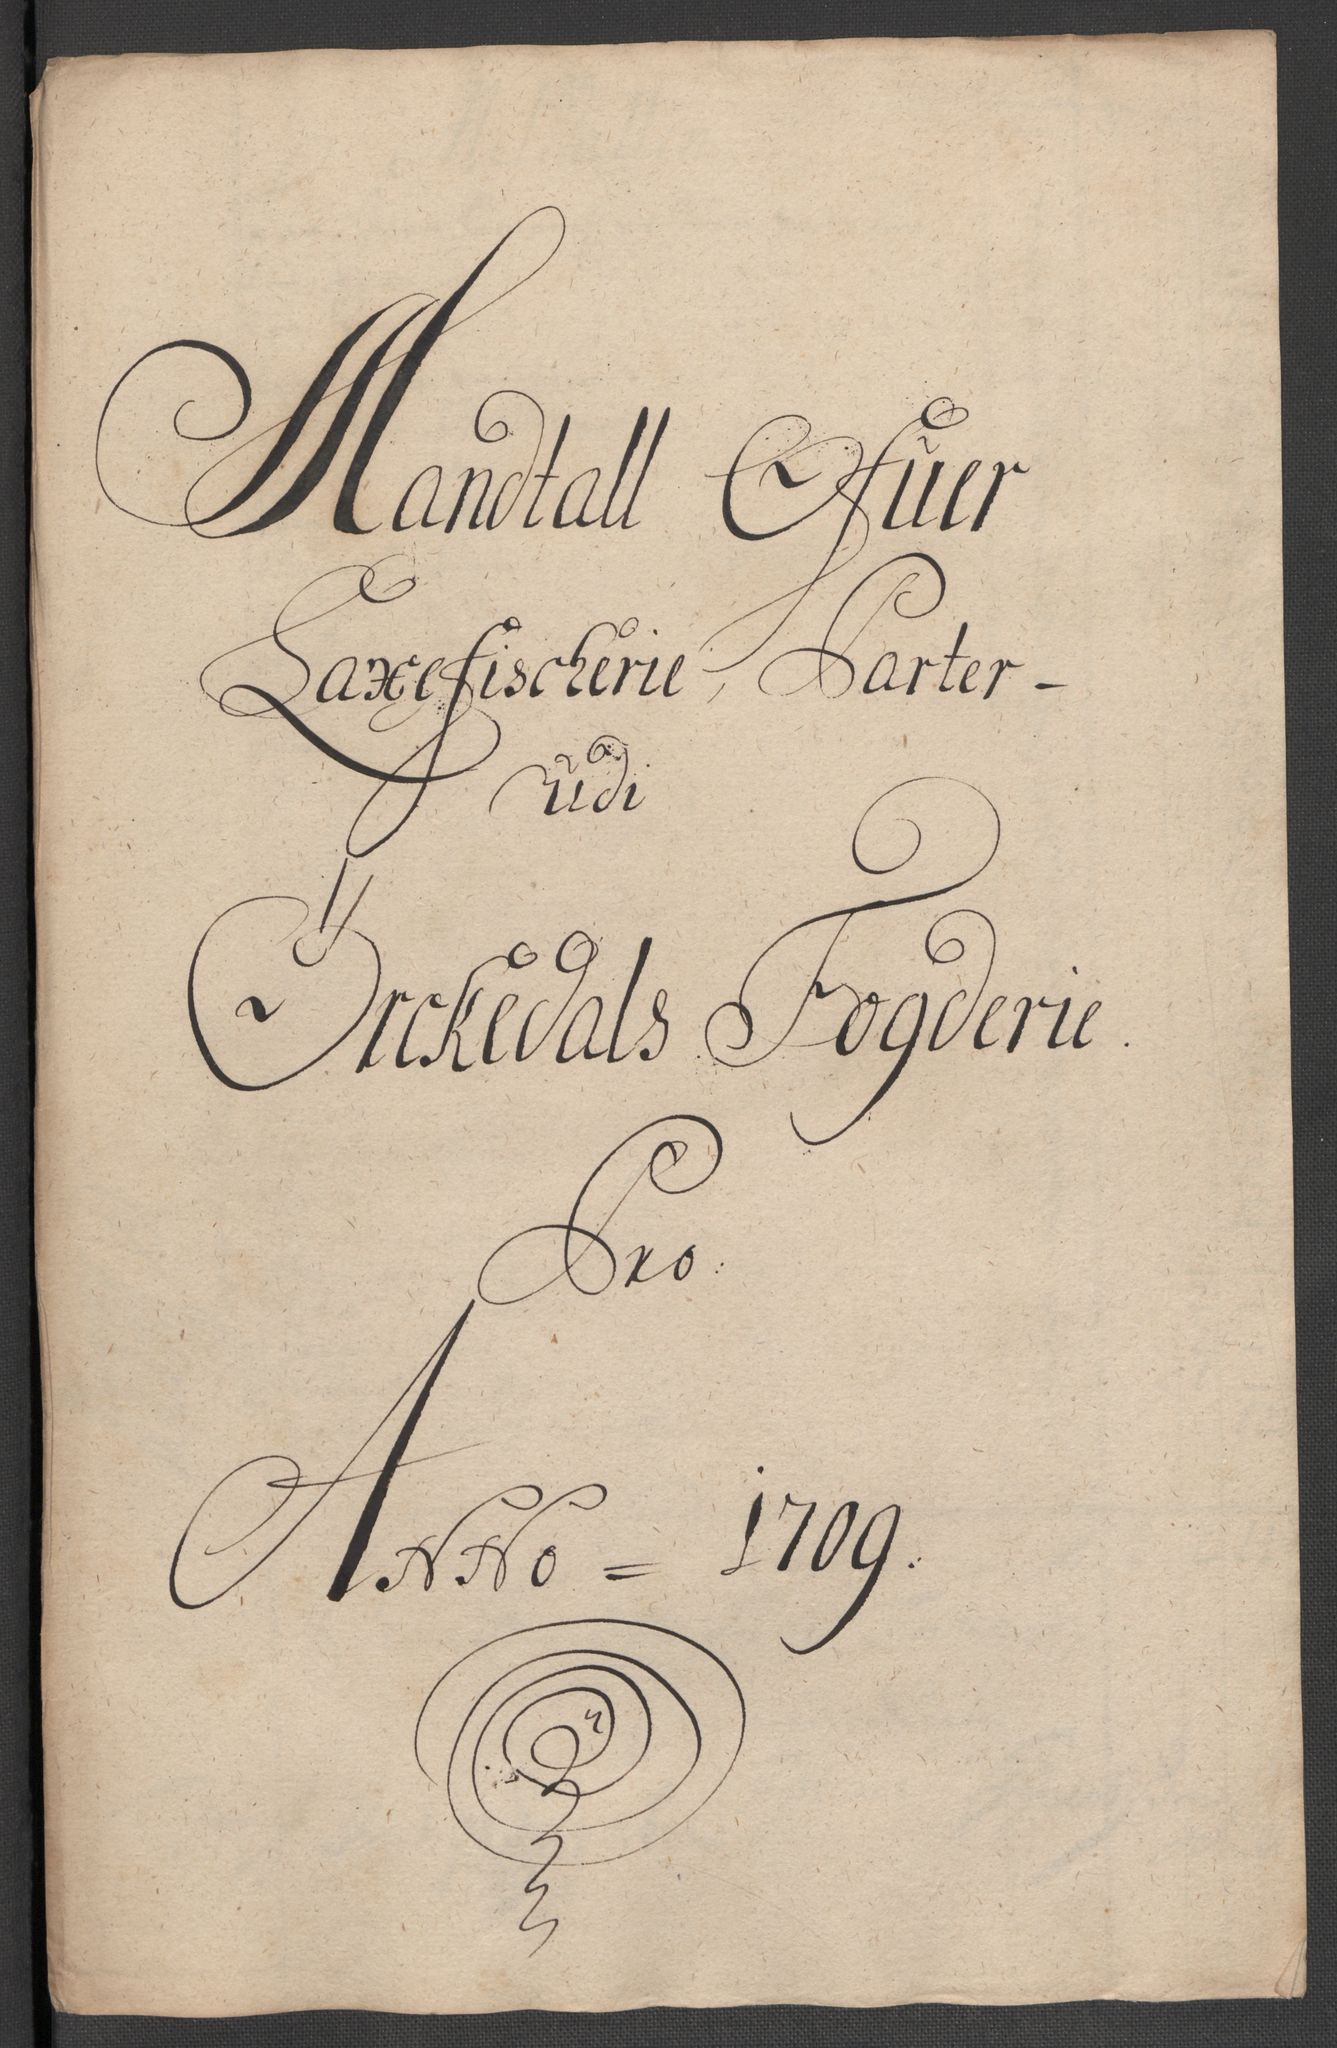 Mandtall Ofuer
Laxefischerie, Parter -
udi
Örckedals Fogderie.
Pro.
ANNo = 1709.